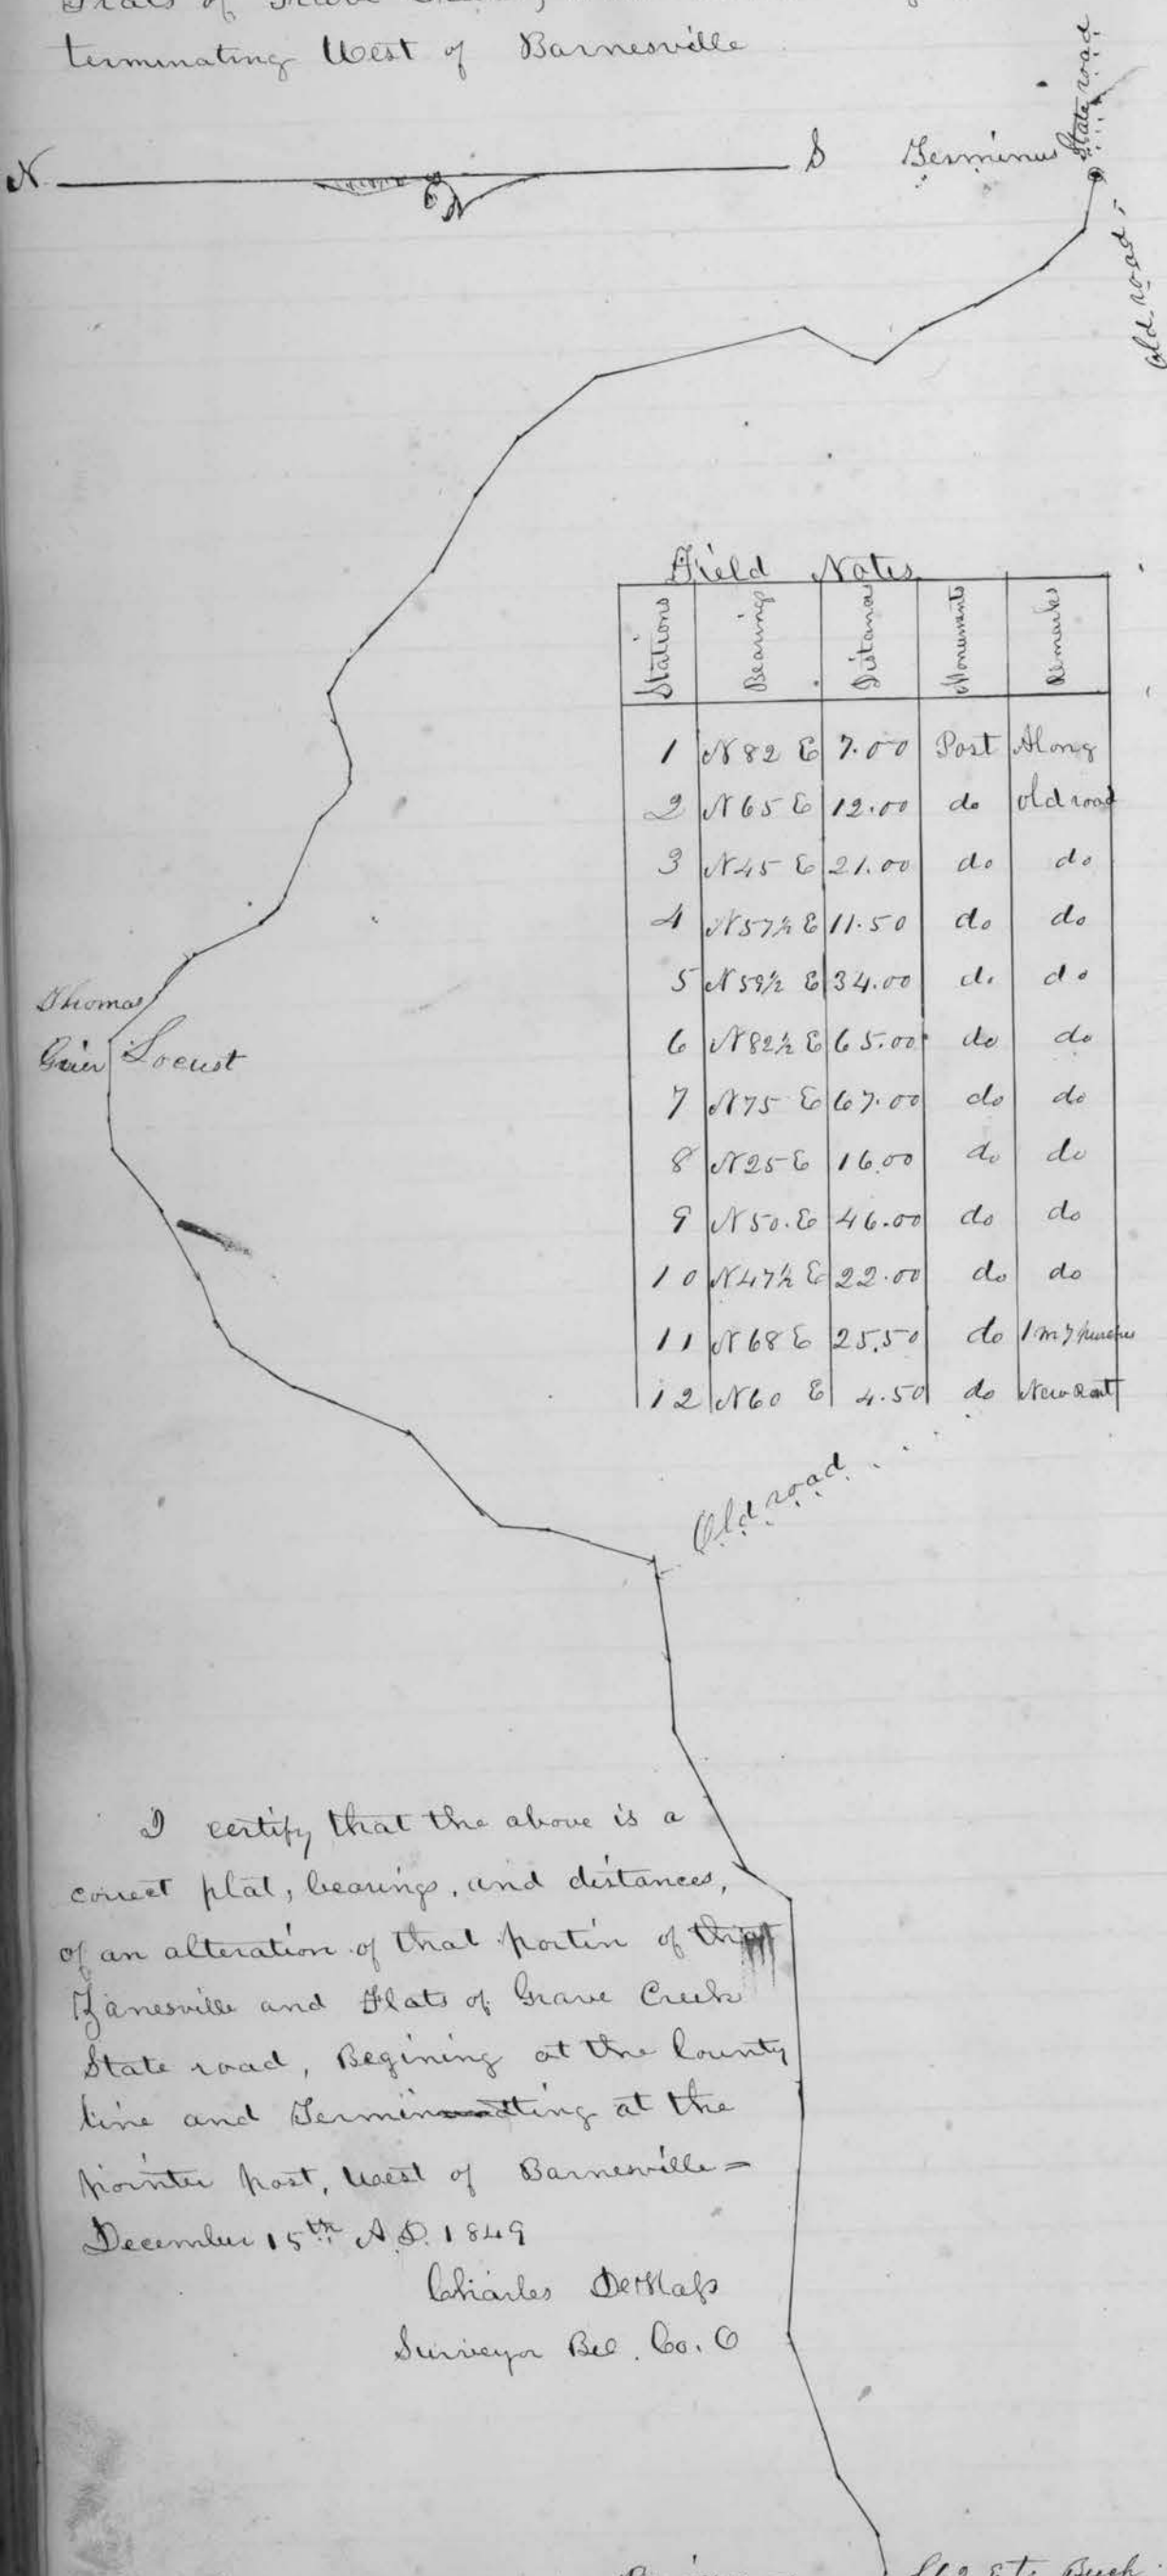 Flats of Grave
terminating West of Barnesville
N S Terminus
State road
Old road
Field Notes
Stations Bearings Distances Monuments Remarks
1 N 82 E 7.00 Post Along
2 N 65 E 12.00 do old road
3 N 45 E 21.00 do do
4 N 57½ E 11.50 do do
5 N 59½ E 34.00 do do
6 N 82½ E 65.00 do do
7 N 75 E 67.00 do do
8 N 25 E 16.00 do do
9 N 50. E 46.00 do do
10 N 47½ E 22.00 do do
11 N 68 E 25.50 do 1 m 7 perches
12 N 60 E 4.50 do New Rout
Thomas
Grier Locust
Old road
I certify that the above is a
correct plat, bearings, and distances,
of an alteration of that portin of the
Zanesville and Flats of Grave Creek
State road, Begining at the County
line and Terminating at the
pointer post, West of Barnesville =
December 15th A.D. 1849
Charles DeHass
Surveyor Bel. Co. O